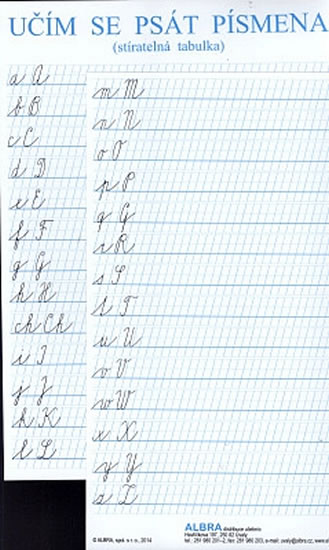 UČÍM SE PSÁT PÍSMENA
(stíratelná tabulka)
a A
b B
c C
d D
e E
f F
g G
h H
ch Ch
i I
j J
k K
l L
m M
n N
o O
p P
q Q
r R
s S
t T
u U
v V
w W
x X
y Y
z Z
© ALBRA, spol. s r. o., 2014
ALBRA distribuce učebnic
Havlíčkova 197, 250 82 Úvaly